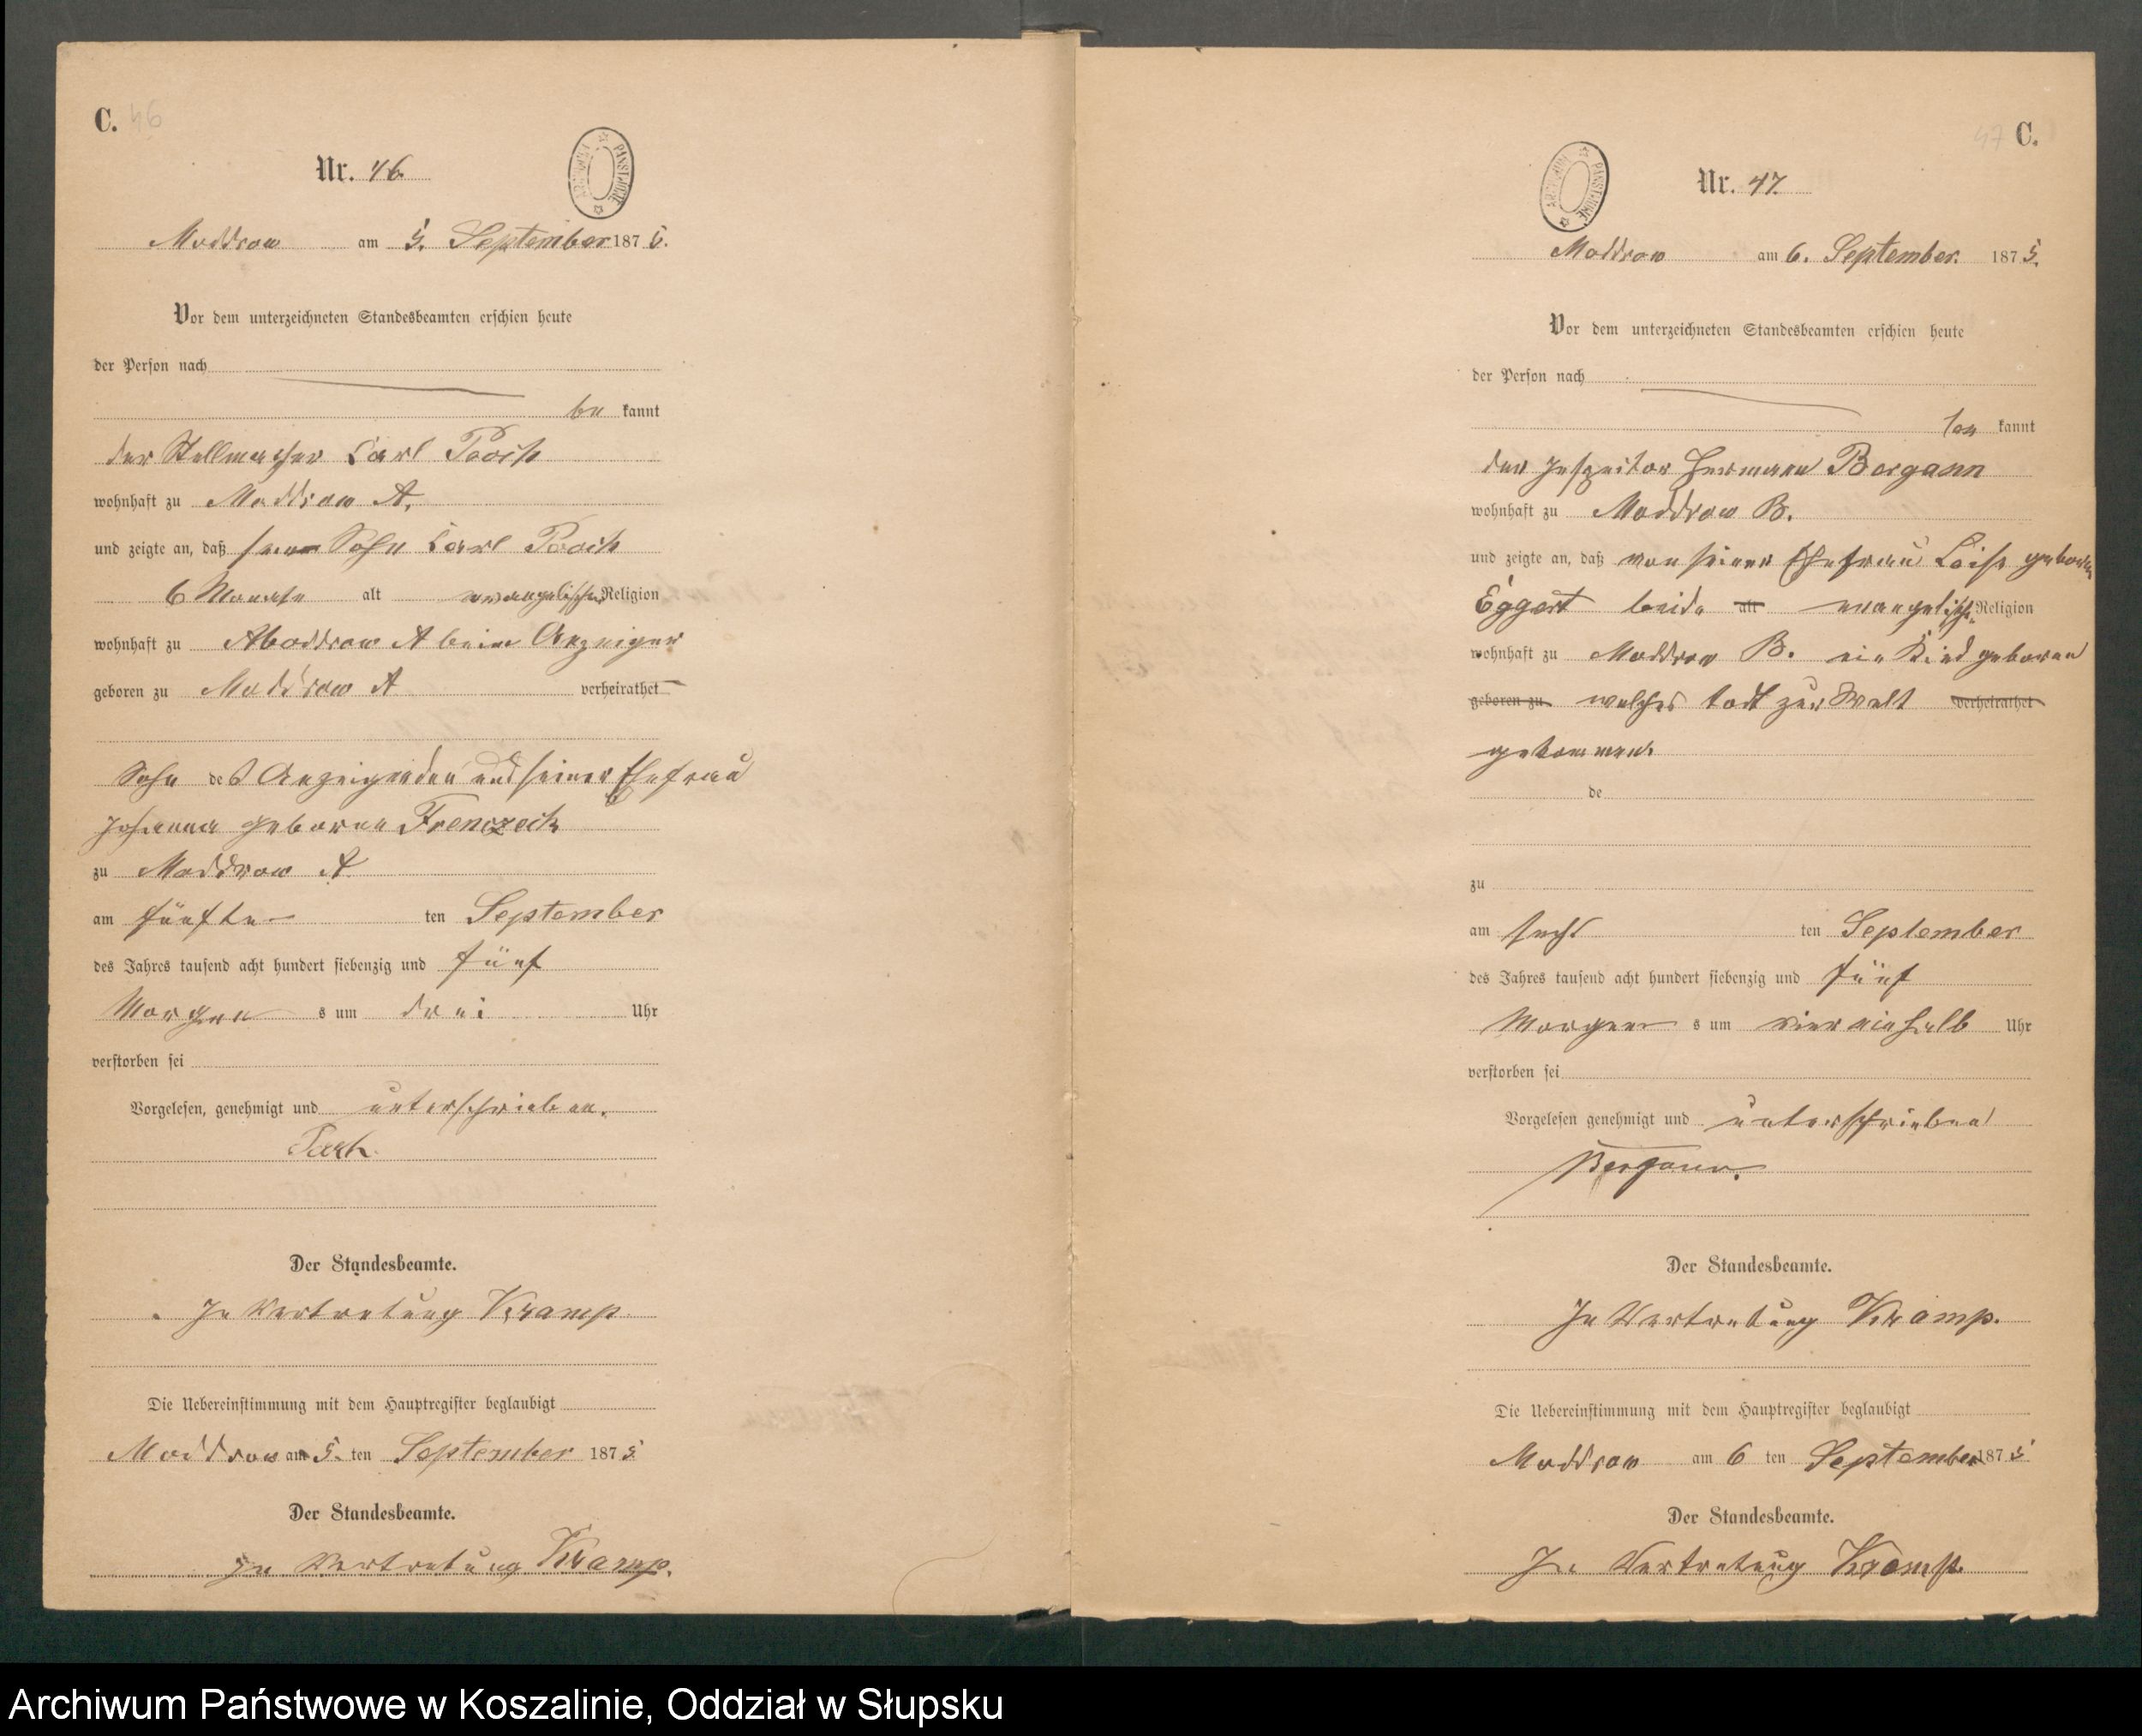 C. 46
Nr. 46.
Moddrow am 5. September 1875.
Vor dem unterzeichneten Standesbeamten erschien heute
der Person nach
be kannt
der Stellmacher Carl Pooch
wohnhaft zu Moddrow A.
und zeigte an, daß sein Sohn Carl Pooch
6 Monate alt evangelischer Religion
wohnhaft zu Moddrow A beim Anzeiger
geboren zu Moddrow A verheirathet
Sohn des Anzeigenden und seiner Ehefrau
Johanna geborne Frenczeck
zu Moddrow A
am fünften ten September
des Jahres tausend acht hundert siebenzig und fünf
Morgen s um drei Uhr
verstorben sei
Vorgelesen, genehmigt und unterschrieben.
Der Standesbeamte.
In Vertretung Kramp
Die Uebereinstimmung mit dem Hauptregister beglaubigt
Moddrow am 5. ten September 1875
Der Standesbeamte.
In Vertretung Kramp.
47 C.
Nr. 47.
Moddrow am 6. September. 1875.
Vor dem unterzeichneten Standesbeamten erschien heute
der Person nach
be kannt
der Inspector Hermann Bergann
wohnhaft zu Moddrow B.
und zeigte an, daß von seiner Ehefrau Loise geboren
Eggert beide alt evangelisch Religion
wohnhaft zu Moddrow B. ein Kind geboren
geboren zu welches todt zur Welt verheirathet
gekommen.
de
zu
am sechs ten September
des Jahres tausend acht hundert siebenzig und fünf
Morgen s um viereinhalb Uhr
verstorben sei
Vorgelesen genehmigt und unterschrieben
Bergann.
Der Standesbeamte.
In Vertretung Kramp.
Die Uebereinstimmung mit dem Hauptregister beglaubigt
Moddrow am 6 ten September 1875
Der Standesbeamte.
In Vertretung Kramp.
Archiwum Państwowe w Koszalinie, Oddział w Słupsku